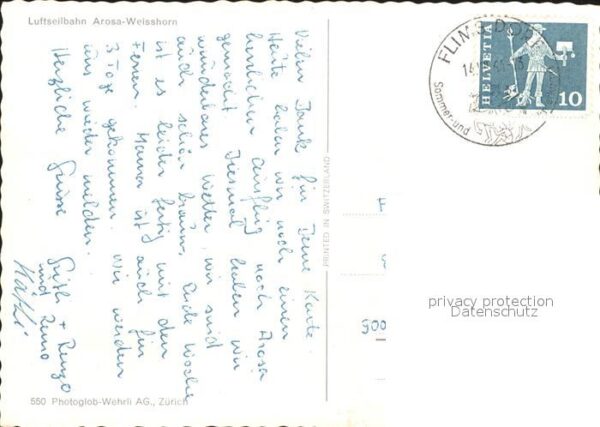 Luftseilbahn Arosa-Weisshorn
Vielen Dank für Deine Karte.
Heute haben wir noch einen
herrlichen Ausflug nach Arosa
gemacht. Diesmal haben wir
wunderbares Wetter, wir sind
auch schön braun. Ende Woche
ist es leider fertig mit den
Ferien. Mama ist auch für
3 Tage gekommen. Wir werden
uns wieder melden.
Herzliche Grüsse
+ Renzo
und Reno
Käthi
550 Photoglob-Wehrli AG., Zürich
PRINTED IN SWITZERLAND
FLIMS DORF
Sommer-und
HELVETIA
10
500
privacy protection
Datenschutz